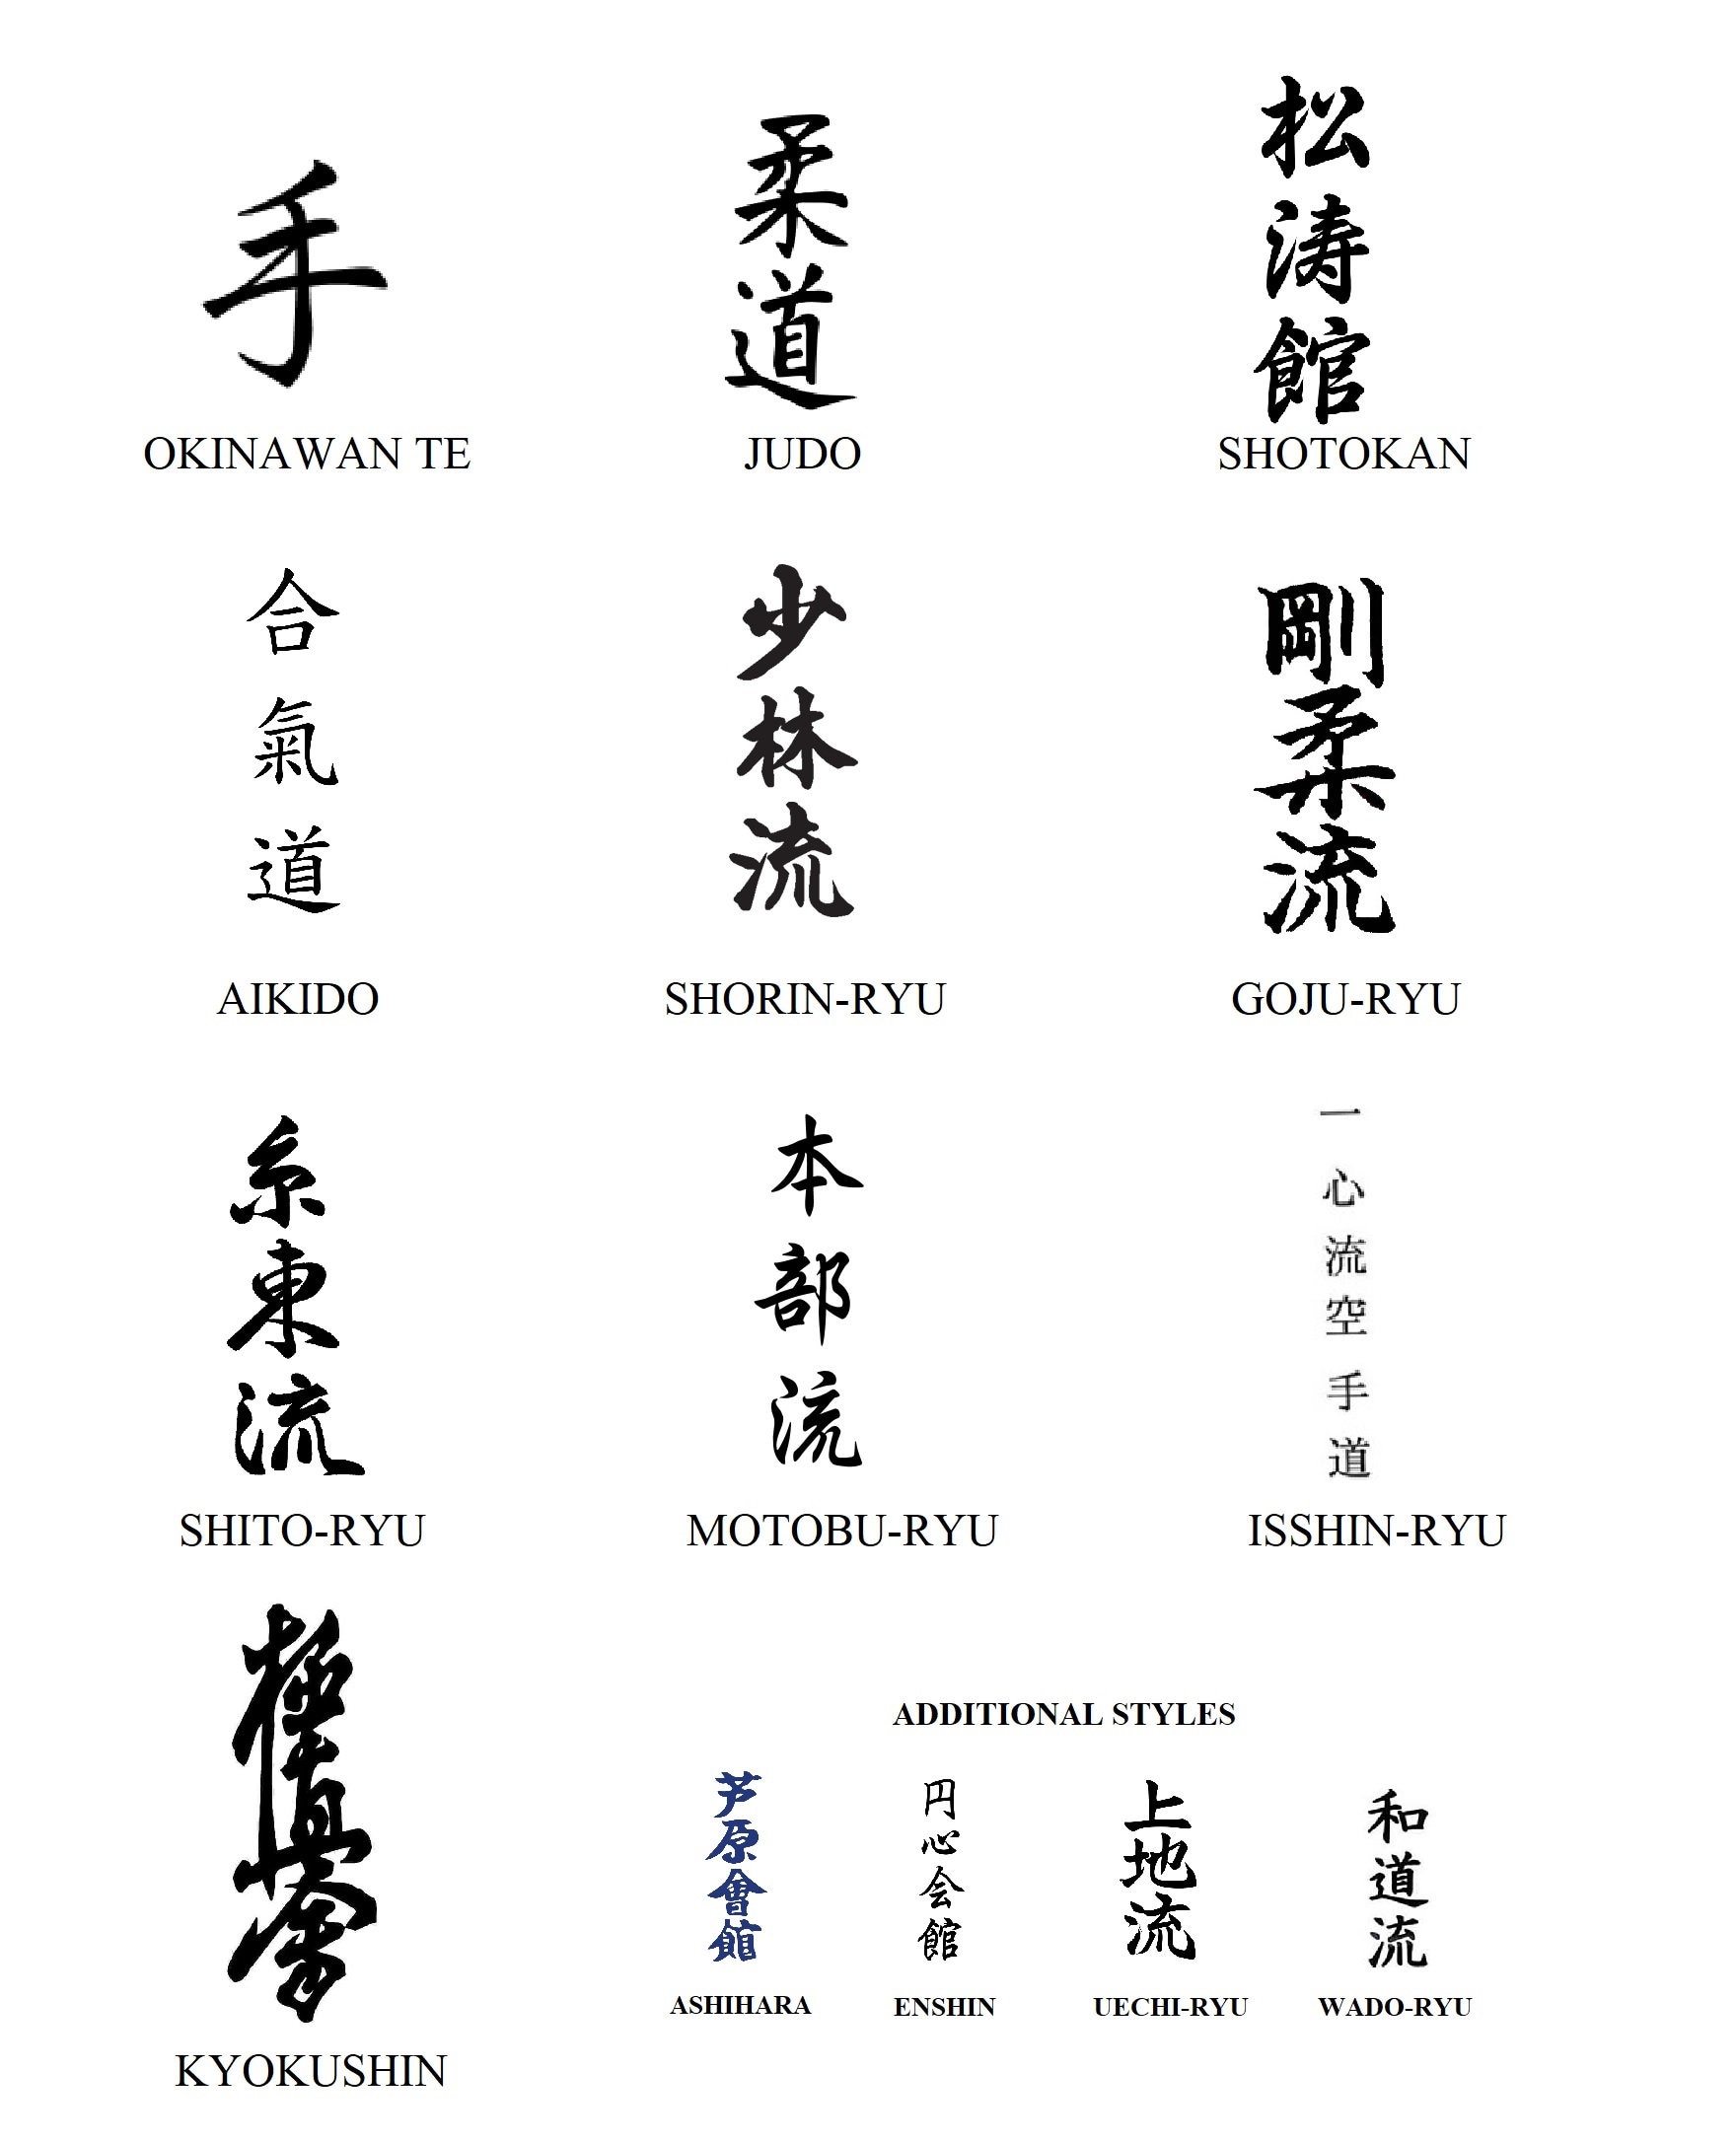 手
OKINAWAN TE
柔道
JUDO
松涛館
SHOTOKAN
合氣道
AIKIDO
少林流
SHORIN-RYU
剛柔流
GOJU-RYU
糸東流
SHITO-RYU
本部流
MOTOBU-RYU
一心流空手道
ISSHIN-RYU
極真會
KYOKUSHIN
ADDITIONAL STYLES
芦原會館
ASHIHARA
円心会館
ENSHIN
上地流
UECHI-RYU
和道流
WADO-RYU